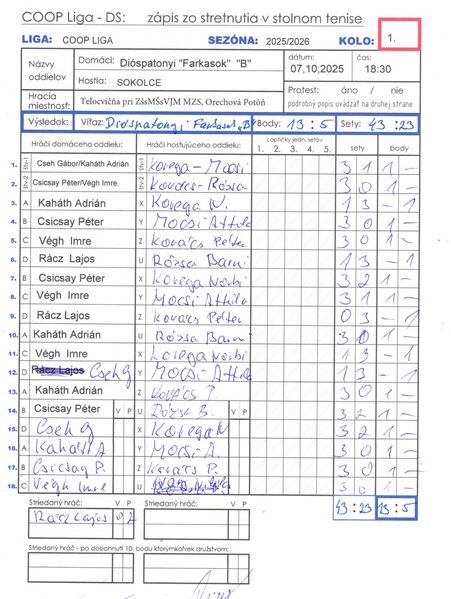 COOP Liga - DS: zápis zo stretnutia v stolnom tenise
LIGA: COOP LIGA SEZÓNA: 2025/2026 KOLO: 1.
Názvy oddielov Domáci: Dióspatonyi "Farkasok" "B" dátum: 07,10,2025 čas: 18:30
Hostia: SOKOLCE Protest: áno / nie
Hracia miestnosť: Telocvičňa pri ZšsMŠsVJM MZS, Orechová Potôň podrobný popis uvádzať na druhej strane
Výsledok: Víťaz: Dióspatonyi Farkasok "B" Body: 13 : 5 Sety: 43 : 23
Hráči domáceho oddielu: Hráči hosťujúceho oddielu: Loptičky jedn. setov sety body
1. 2. 3. 4. 5.
1. Štv-1 Cseh Gábor/Kaháth Adrián Štv-1 Kovega - Mocsi 3 1 1 -
2. Štv-2 Csicsay Péter/Végh Imre Štv-2 Kovács - Rózsa 3 0 1 -
3. A Kaháth Adrián X Kovega N. 1 3 - 1
4. B Csicsay Péter Y Mocsi Attila 3 0 1 -
5. C Végh Imre Z Kovács Peter 3 0 1 -
6. D Rácz Lajos U Rózsa Barni 1 3 - 1
7. B Csicsay Péter X Kovega Norbi 3 2 1 -
8. C Végh Imre Y Mocsi Attila 3 1 1 -
9. D Rácz Lajos Z Kovacs Peter 0 3 - 1
10. A Kaháth Adrián U Rózsa Barni 3 0 1 -
11. C Végh Imre X Kovega Norbi 1 3 - 1
12. D Rácz Lajos Cseh G Y Mocsi Attila 1 3 - 1
13. A Kaháth Adrián Z Kovács P. 3 0 1 -
14. B Csicsay Péter V P U Rózsa B. V P 3 2 1 -
15. D Cseh G X Kovega N 3 2 1 -
16. A Kaháth A Y Mocsi A. 3 0 1 -
17. B Csicsay P. Z Kovacs P. 3 0 1 -
18. C Végh Imre U 3 0 1 -
Striedaný hráč: V P Striedaný hráč: V P 43 : 23 13 : 5
Rácz Lajos 0 2
Striedaný hráč - po dosiahnutí 10. bodu ktorýmkoľvek družstvom:
V P V P